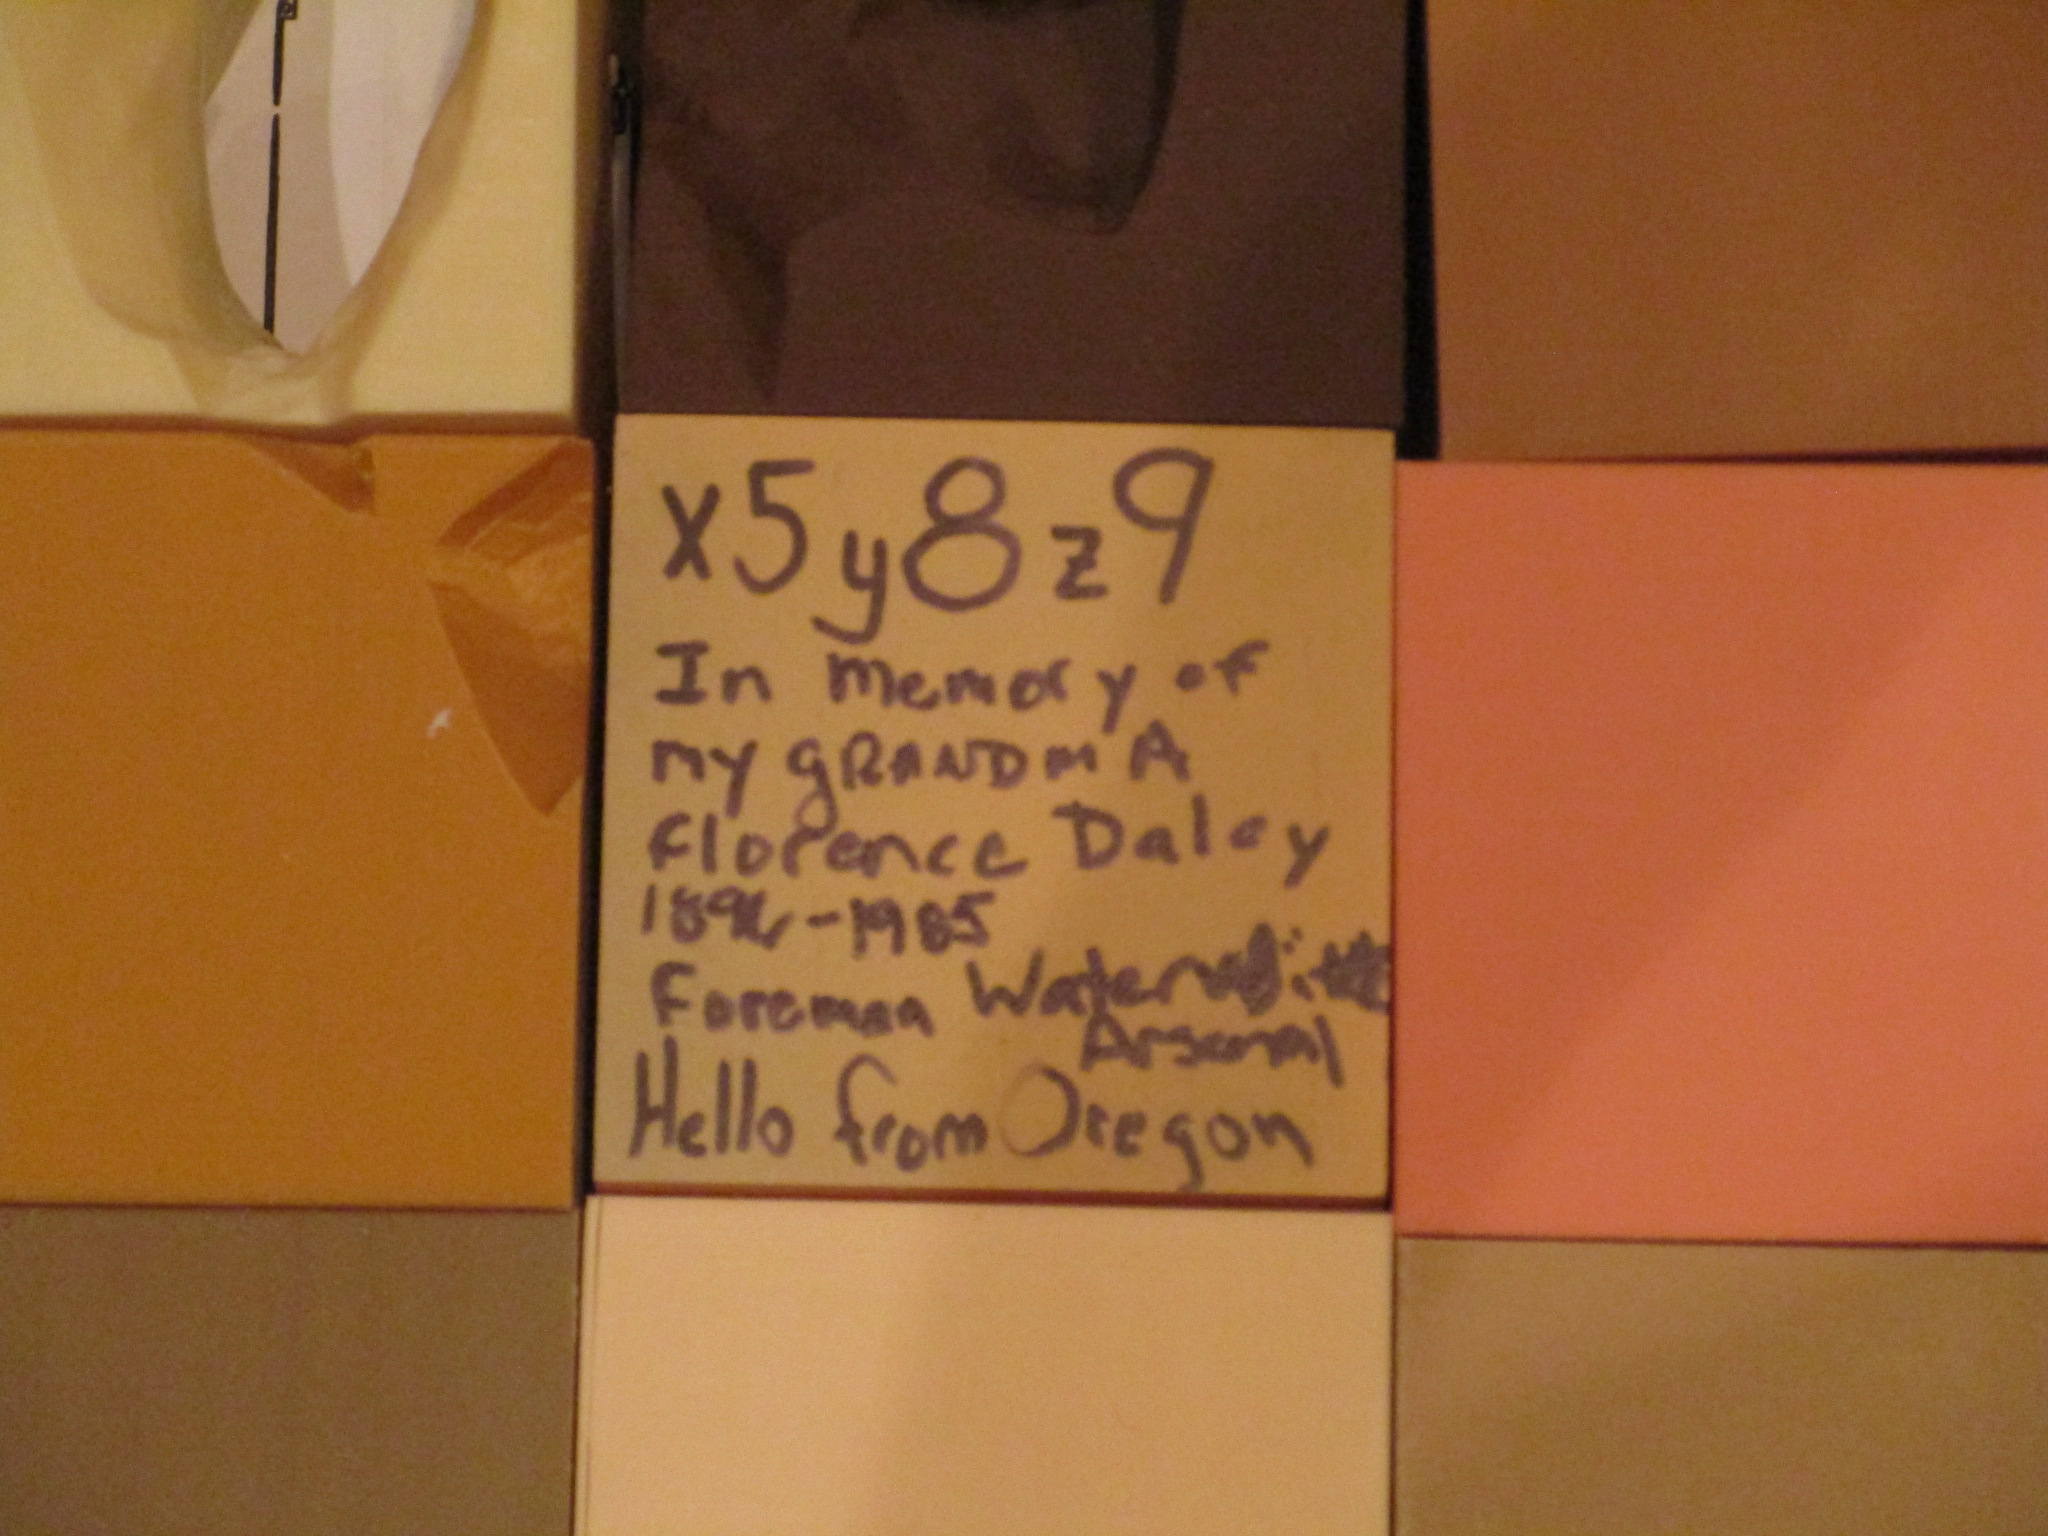 x5y8z9
In memory of
my gRANDmA
Florence Daley
-1985
Foreman
Arsenal
Hello from Oregon